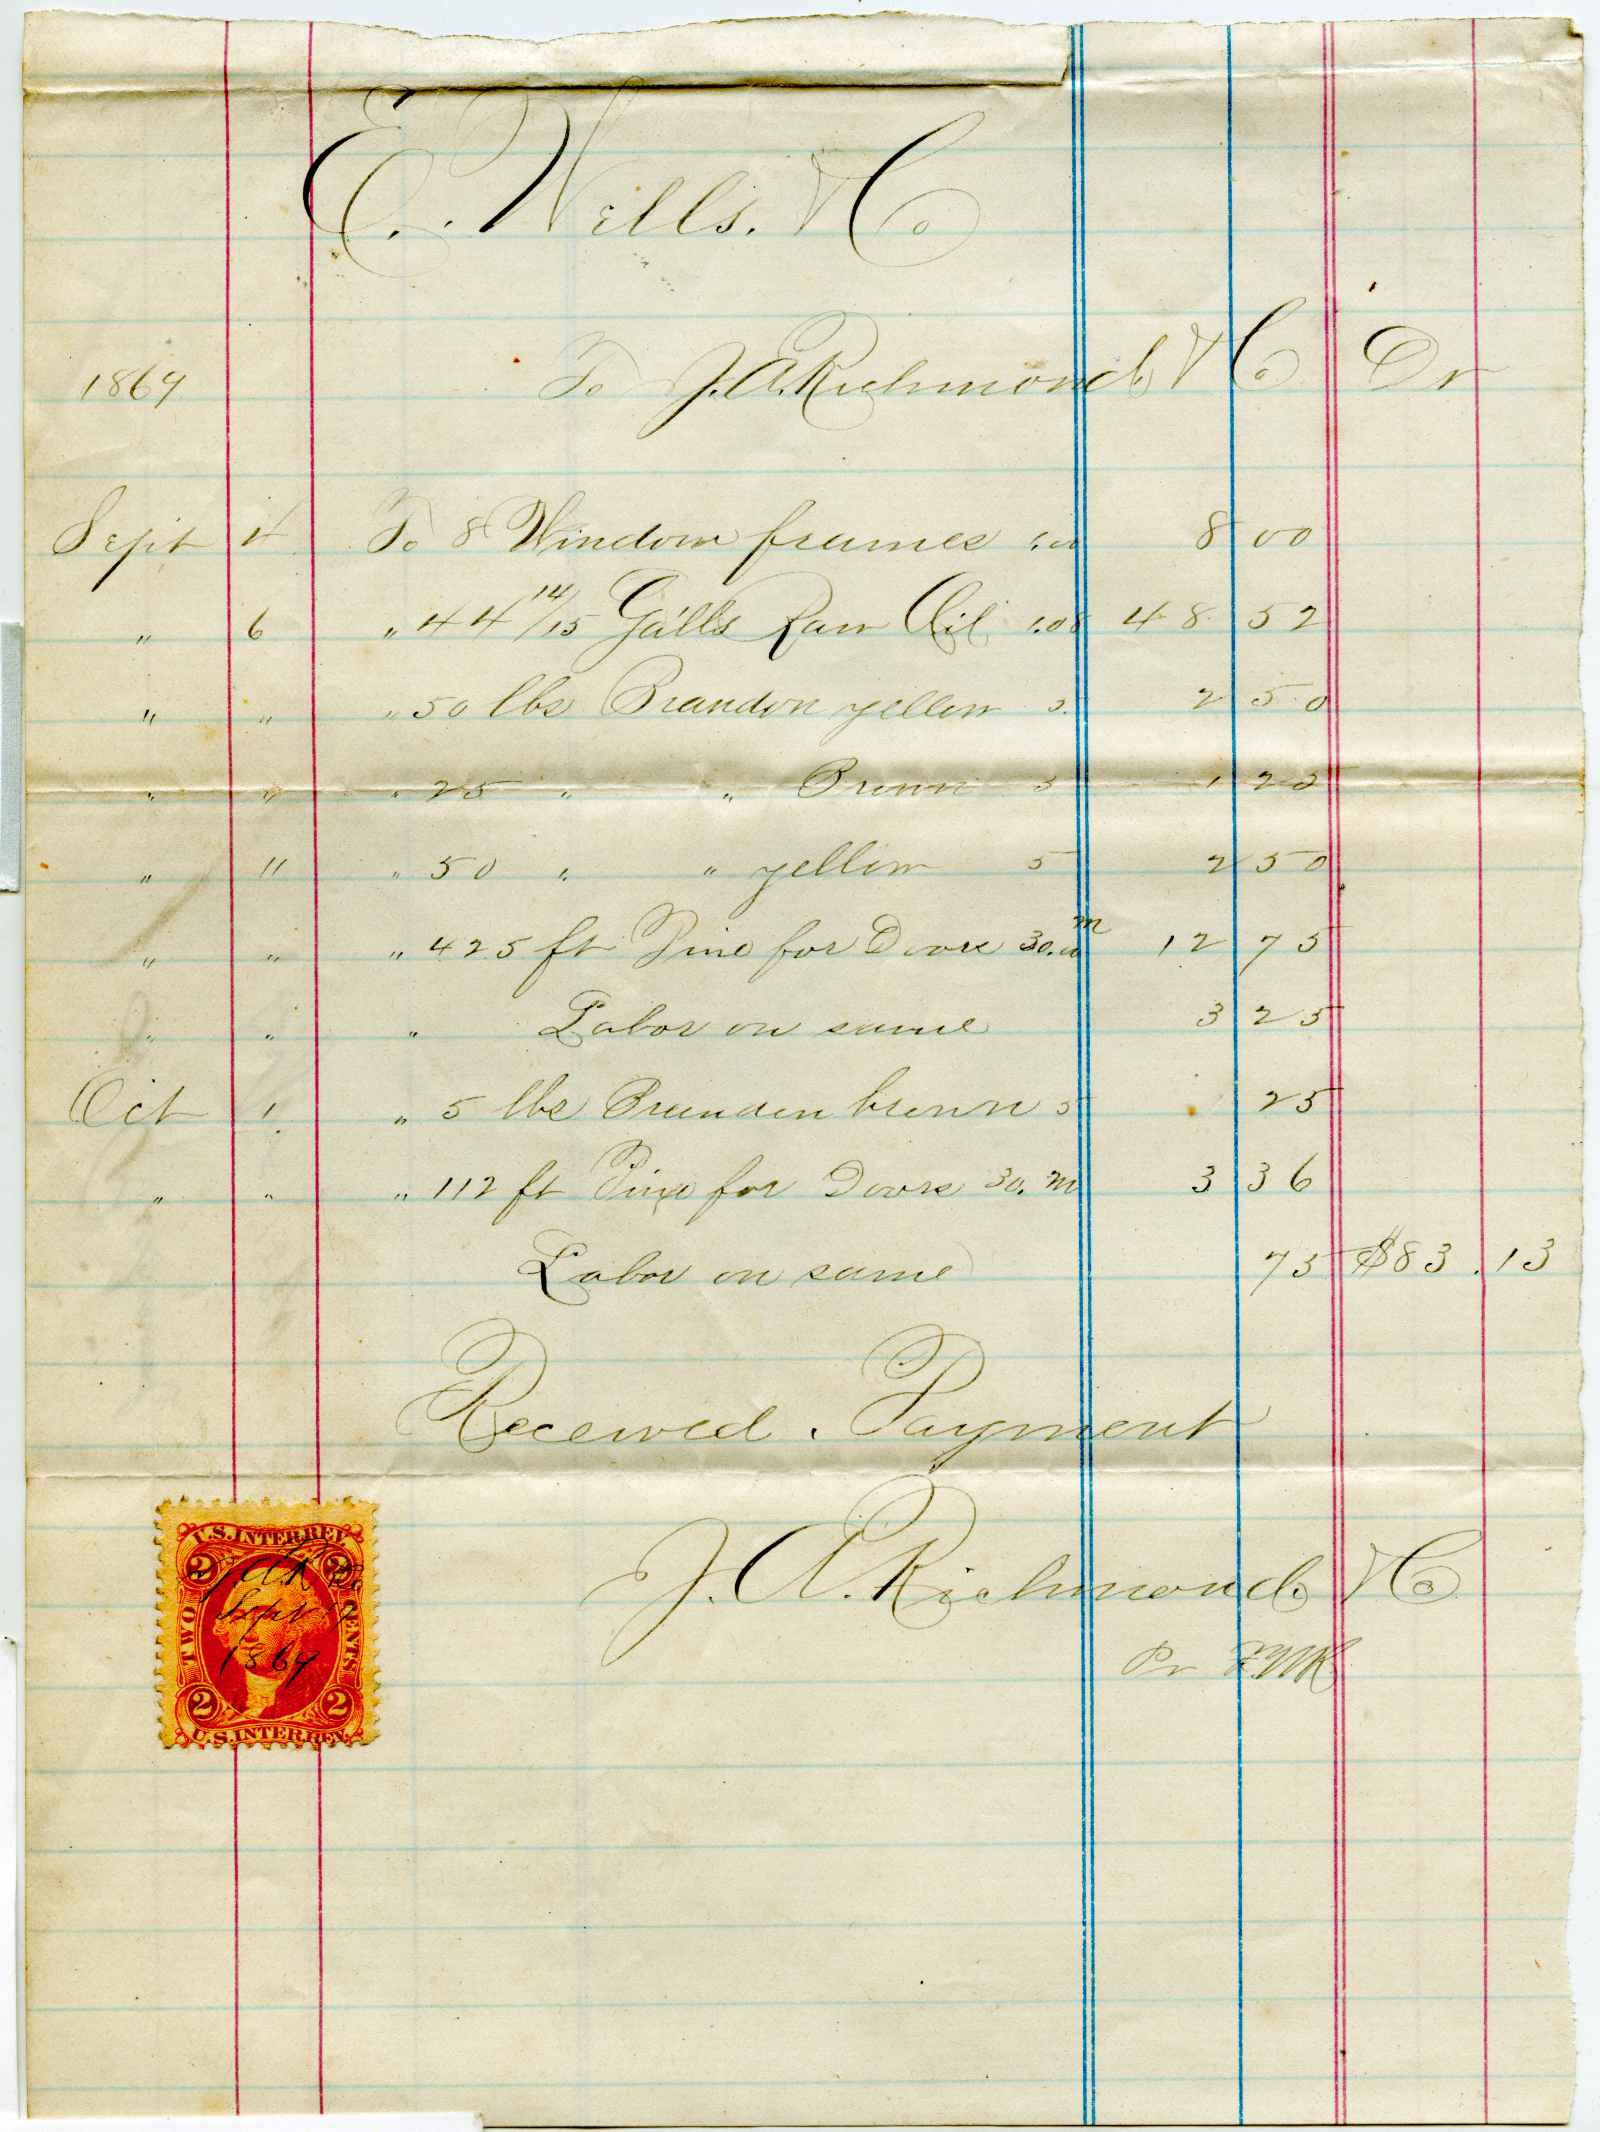 E. Wells. & Co
1869 To J. A. Richmond & Co Dr
Sept 4 To 8 Window frames 1.00 8 00
" 6 " 44 14/15 Galls Raw Oil 1.08 48 52
" " " 50 lbs Brandon yellow 5. 2 50
" " " 25 " " Brown 5 1 25
" 11 " 50 " " yellow 5 2 50
" " " 425 ft Pine for Doors 30.00 m 12 75
" " " Labor on same 3 25
Oct 1 " 5 lbs Brandon brown 5 25
" " " 112 ft Pine for Doors 30. m 3 36
Labor on same 75 $83.13
Received. Payment
J. A. Richmond & Co
Pr
U.S. INTER. REV.
2 2
J.A.R & Co
Sept
1869
TWO CENTS
2 2
U.S. INTER. REV.